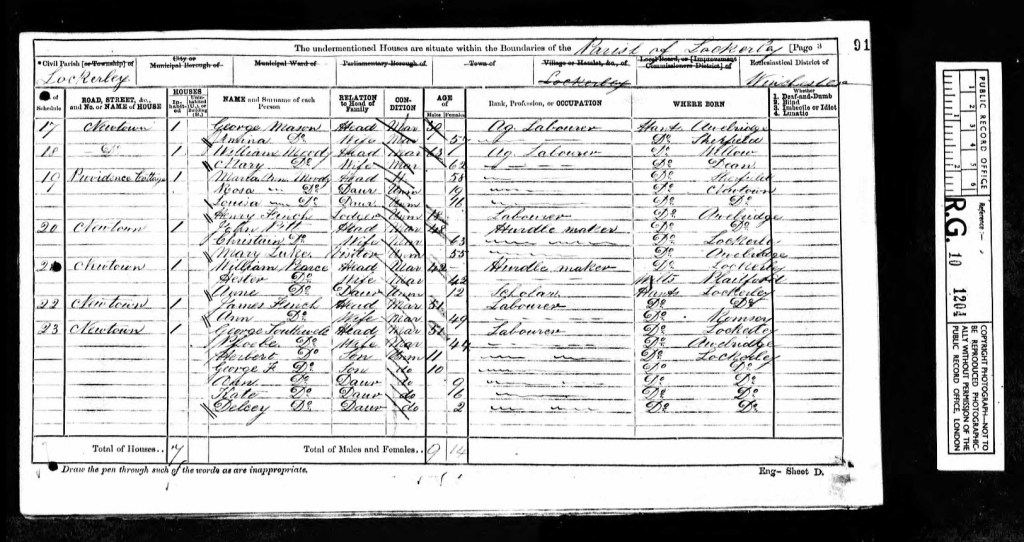 The undermentioned Houses are situate within the Boundaries of the Parish of Lockerley [Page 3
91
Civil Parish [or Township] of
Lockerley
City or Municipal Borough of
Municipal Ward of
Parliamentary Borough of
Town of
Village or Hamlet, &c., of
Lockerley
Local Board, or [Improvement Commissioners District] of
Ecclesiastical District of
No. of Schedule
ROAD, STREET, &c., and No. or NAME of HOUSE
HOUSES
Inhabited
Uninhabited (U.), or Building (B.)
NAME and Surname of each Person
RELATION to Head of Family
CONDITION
AGE of
Males
Females
Rank, Profession, or OCCUPATION
WHERE BORN
Whether
1. Deaf-and-Dumb
2. Blind
3. Imbecile or Idiot
4. Lunatic
17 Newtown 1 George Mason Head Mar Ag. Labourer Hants Awbridge
Do Wife Mar Do Sherfield
18 Do 1 William Moody Head Mar 63 Ag. Labourer Do Wellow
Mary Do Wife Mar 62 Do Dean
19 Providence Cottage 1 Maria Ann Moody Head 58 Do Sherfield
Roosa Do Daur Unm 19 Do Newtown
Louisa Do Daur Unm 11 Do Do
Henry Finch Lodger Unm 18 Labourer Do Awbridge
20 Newtown 1 John Pitt Head Mar 48 Hurdle maker Do
Christain Do Wife Mar 63 Do Lockerley
Mary Luke Visitor Unm 55 Do Awbridge
21 Newtown 1 William Pearce Head Mar 42 Hurdle maker Do Lockerley
Hester Do Wife Mar 42 Wilts Plaitford
Do Daur Unm 12 Scholar Hants Lockerley
22 Newtown 1 James Finch Head Mar 51 Labourer Do Do
Ann Do Wife Mar 49 Do Romsey
23 Newtown 1 George Southwell Head Mar 51 Labourer Do Lockerley
Phoebe Do Wife Mar 44 Do Awbridge
Herbert Do Son Unm 11 Do Lockerley
George F. Do Son do 10 Do Do
Ann Do Daur do 9 Do Do
Kate Do Daur do 6 Do Do
Do Daur do 2 Do Do
Total of Houses.. 7
Total of Males and Females.. 9 14
Draw the pen through such of the words as are inappropriate.
Eng- Sheet D.
PUBLIC RECORD OFFICE
1 2 3 4 5 6
Reference :-
R.G. 10 1204
COPYRIGHT PHOTOGRAPH—NOT TO
BE REPRODUCED PHOTOGRAPHIC-
ALLY WITHOUT PERMISSION OF THE
PUBLIC RECORD OFFICE, LONDON